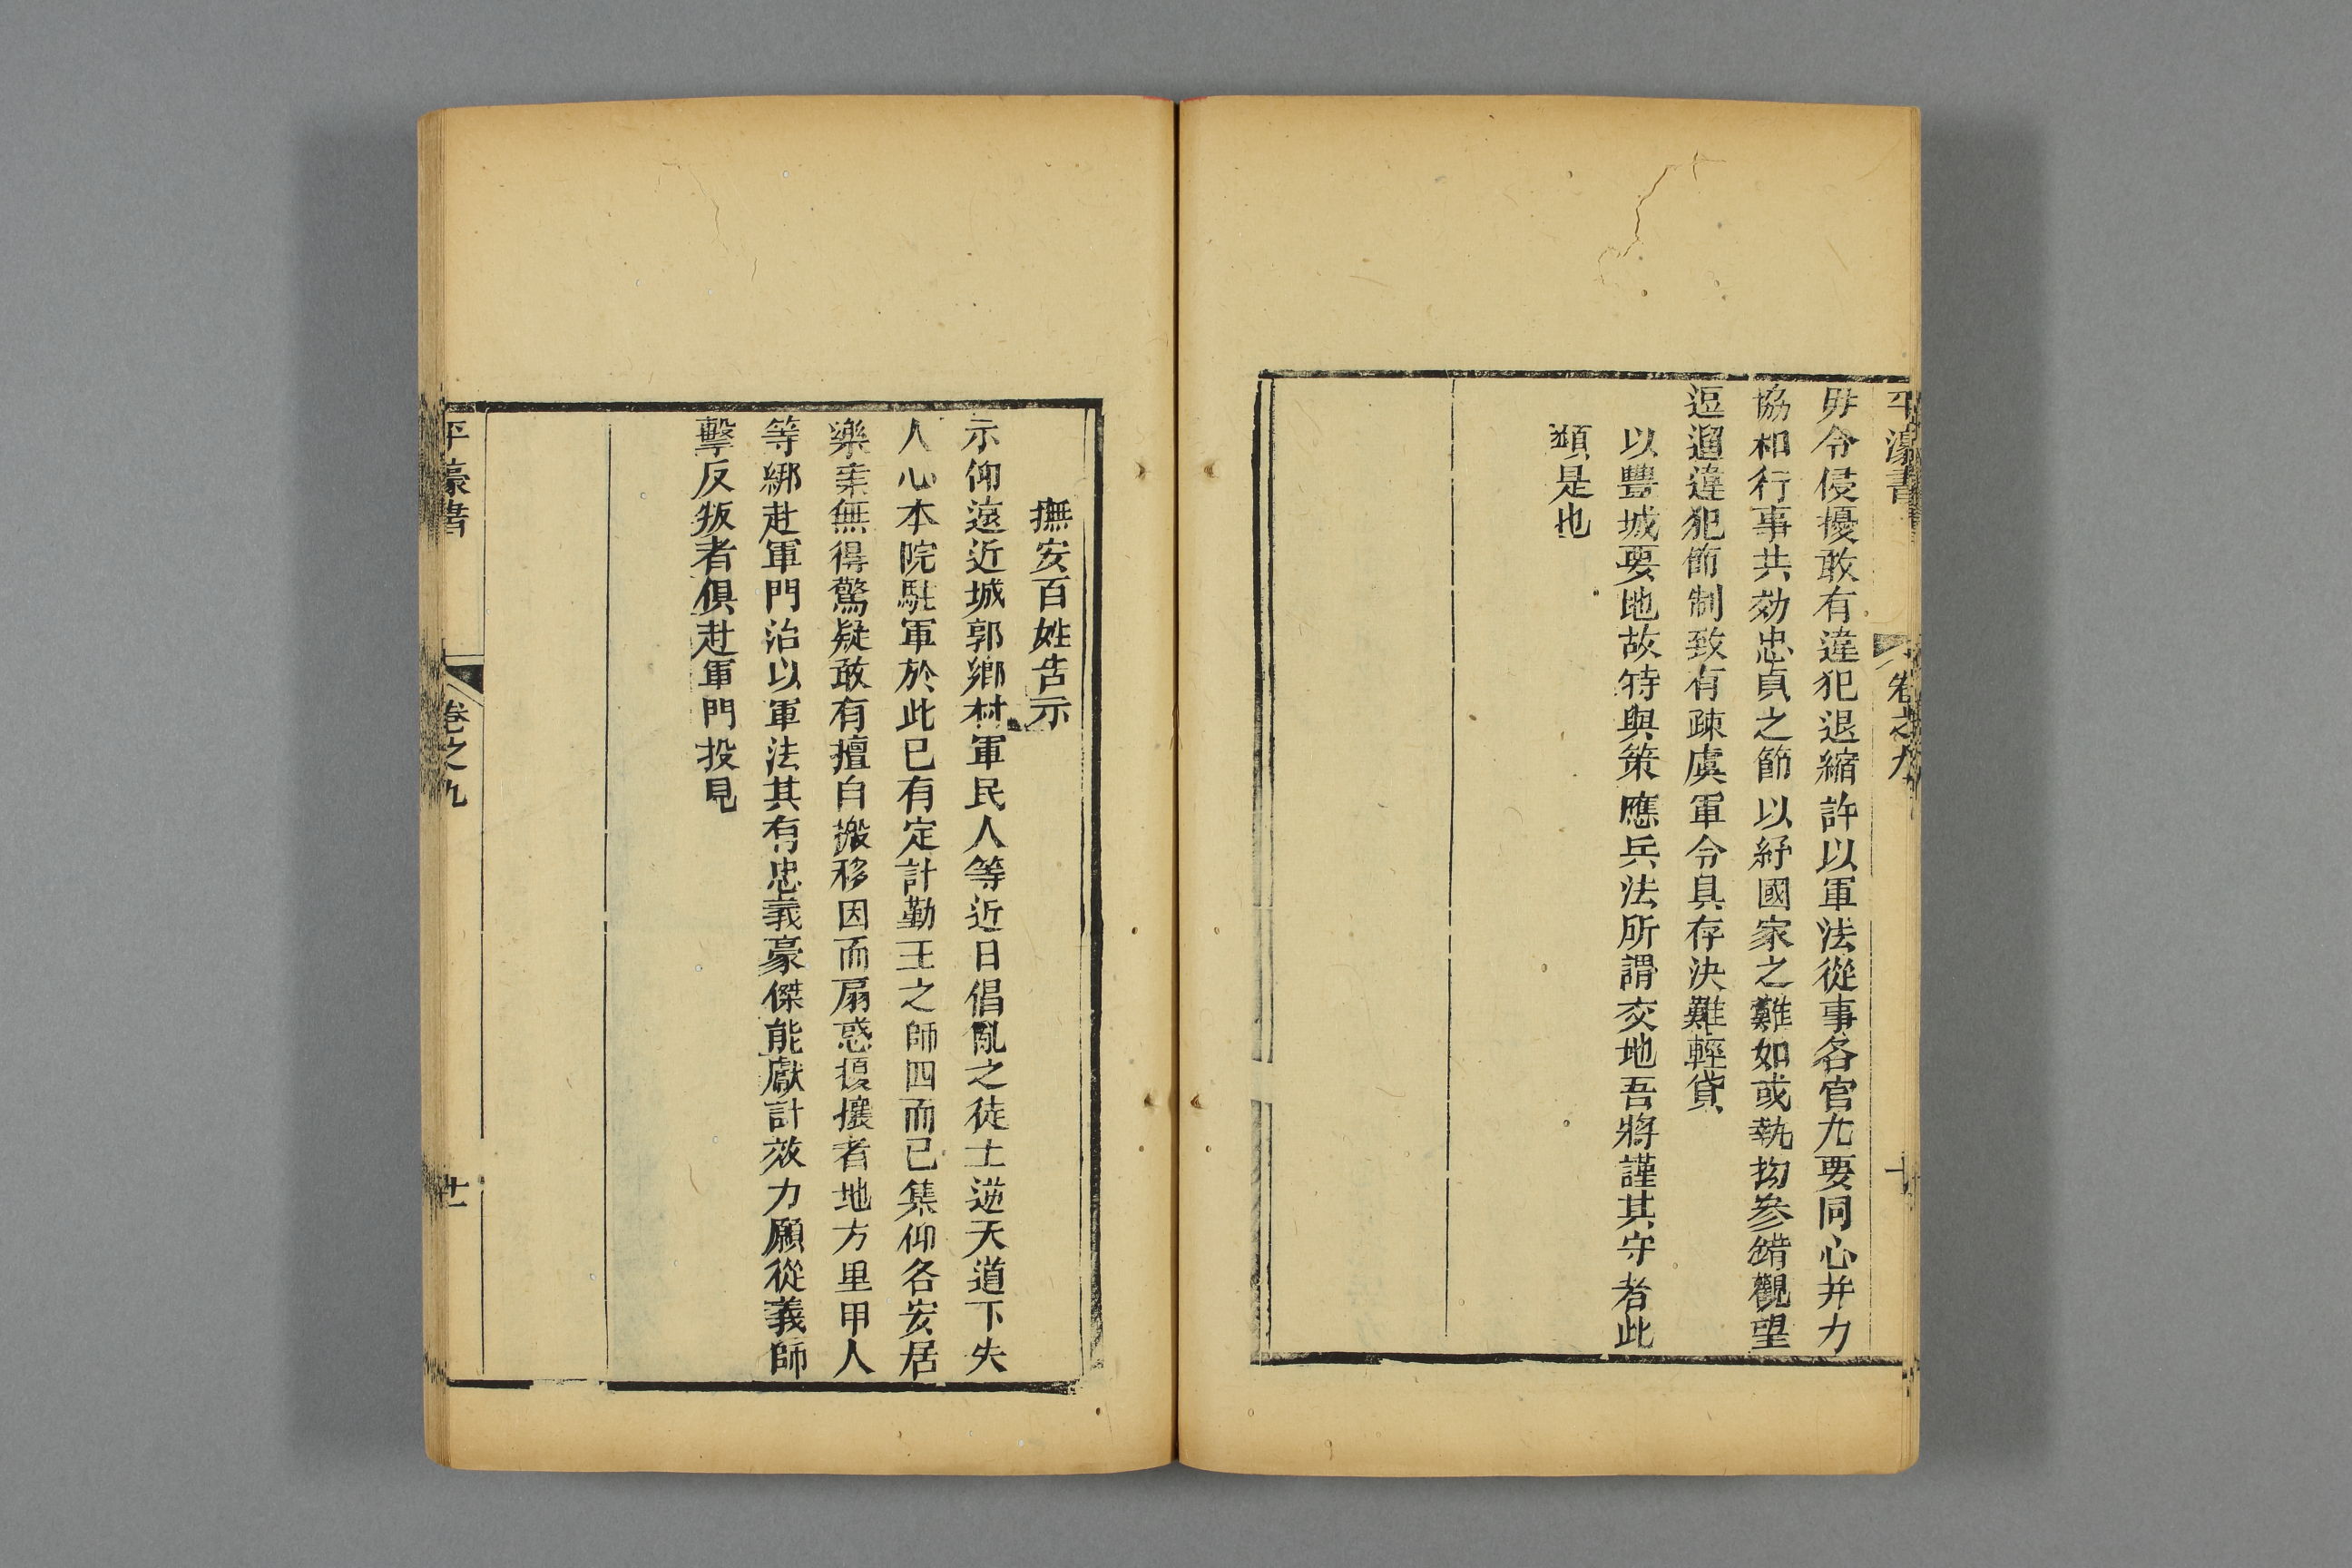 平濠書 卷之九
毋令侵擾敢有違犯退縮許以軍法從事各官尤要同心并力
協和行事共効忠貞之節以紓國家之難如或執拗參錯觀望
逗遛違犯節制致有疎虞軍令具存決難輕貸
以豐城要地故特與策應兵法所謂交地吾將謹其守者此
類是也
撫安百姓告示
示仰遠近城郭鄉村軍民人等近日倡亂之徒上逆天道下失
人心本院駐軍於此已有定計勤王之師四面已集仰各安居
樂業無得驚疑敢有擅自搬移因而扇惑擾攘者地方里甲人
等綁赴軍門治以軍法其有忠義豪傑能獻計效力願從義師
擊反叛者俱赴軍門投見
平濠書 卷之九 廿